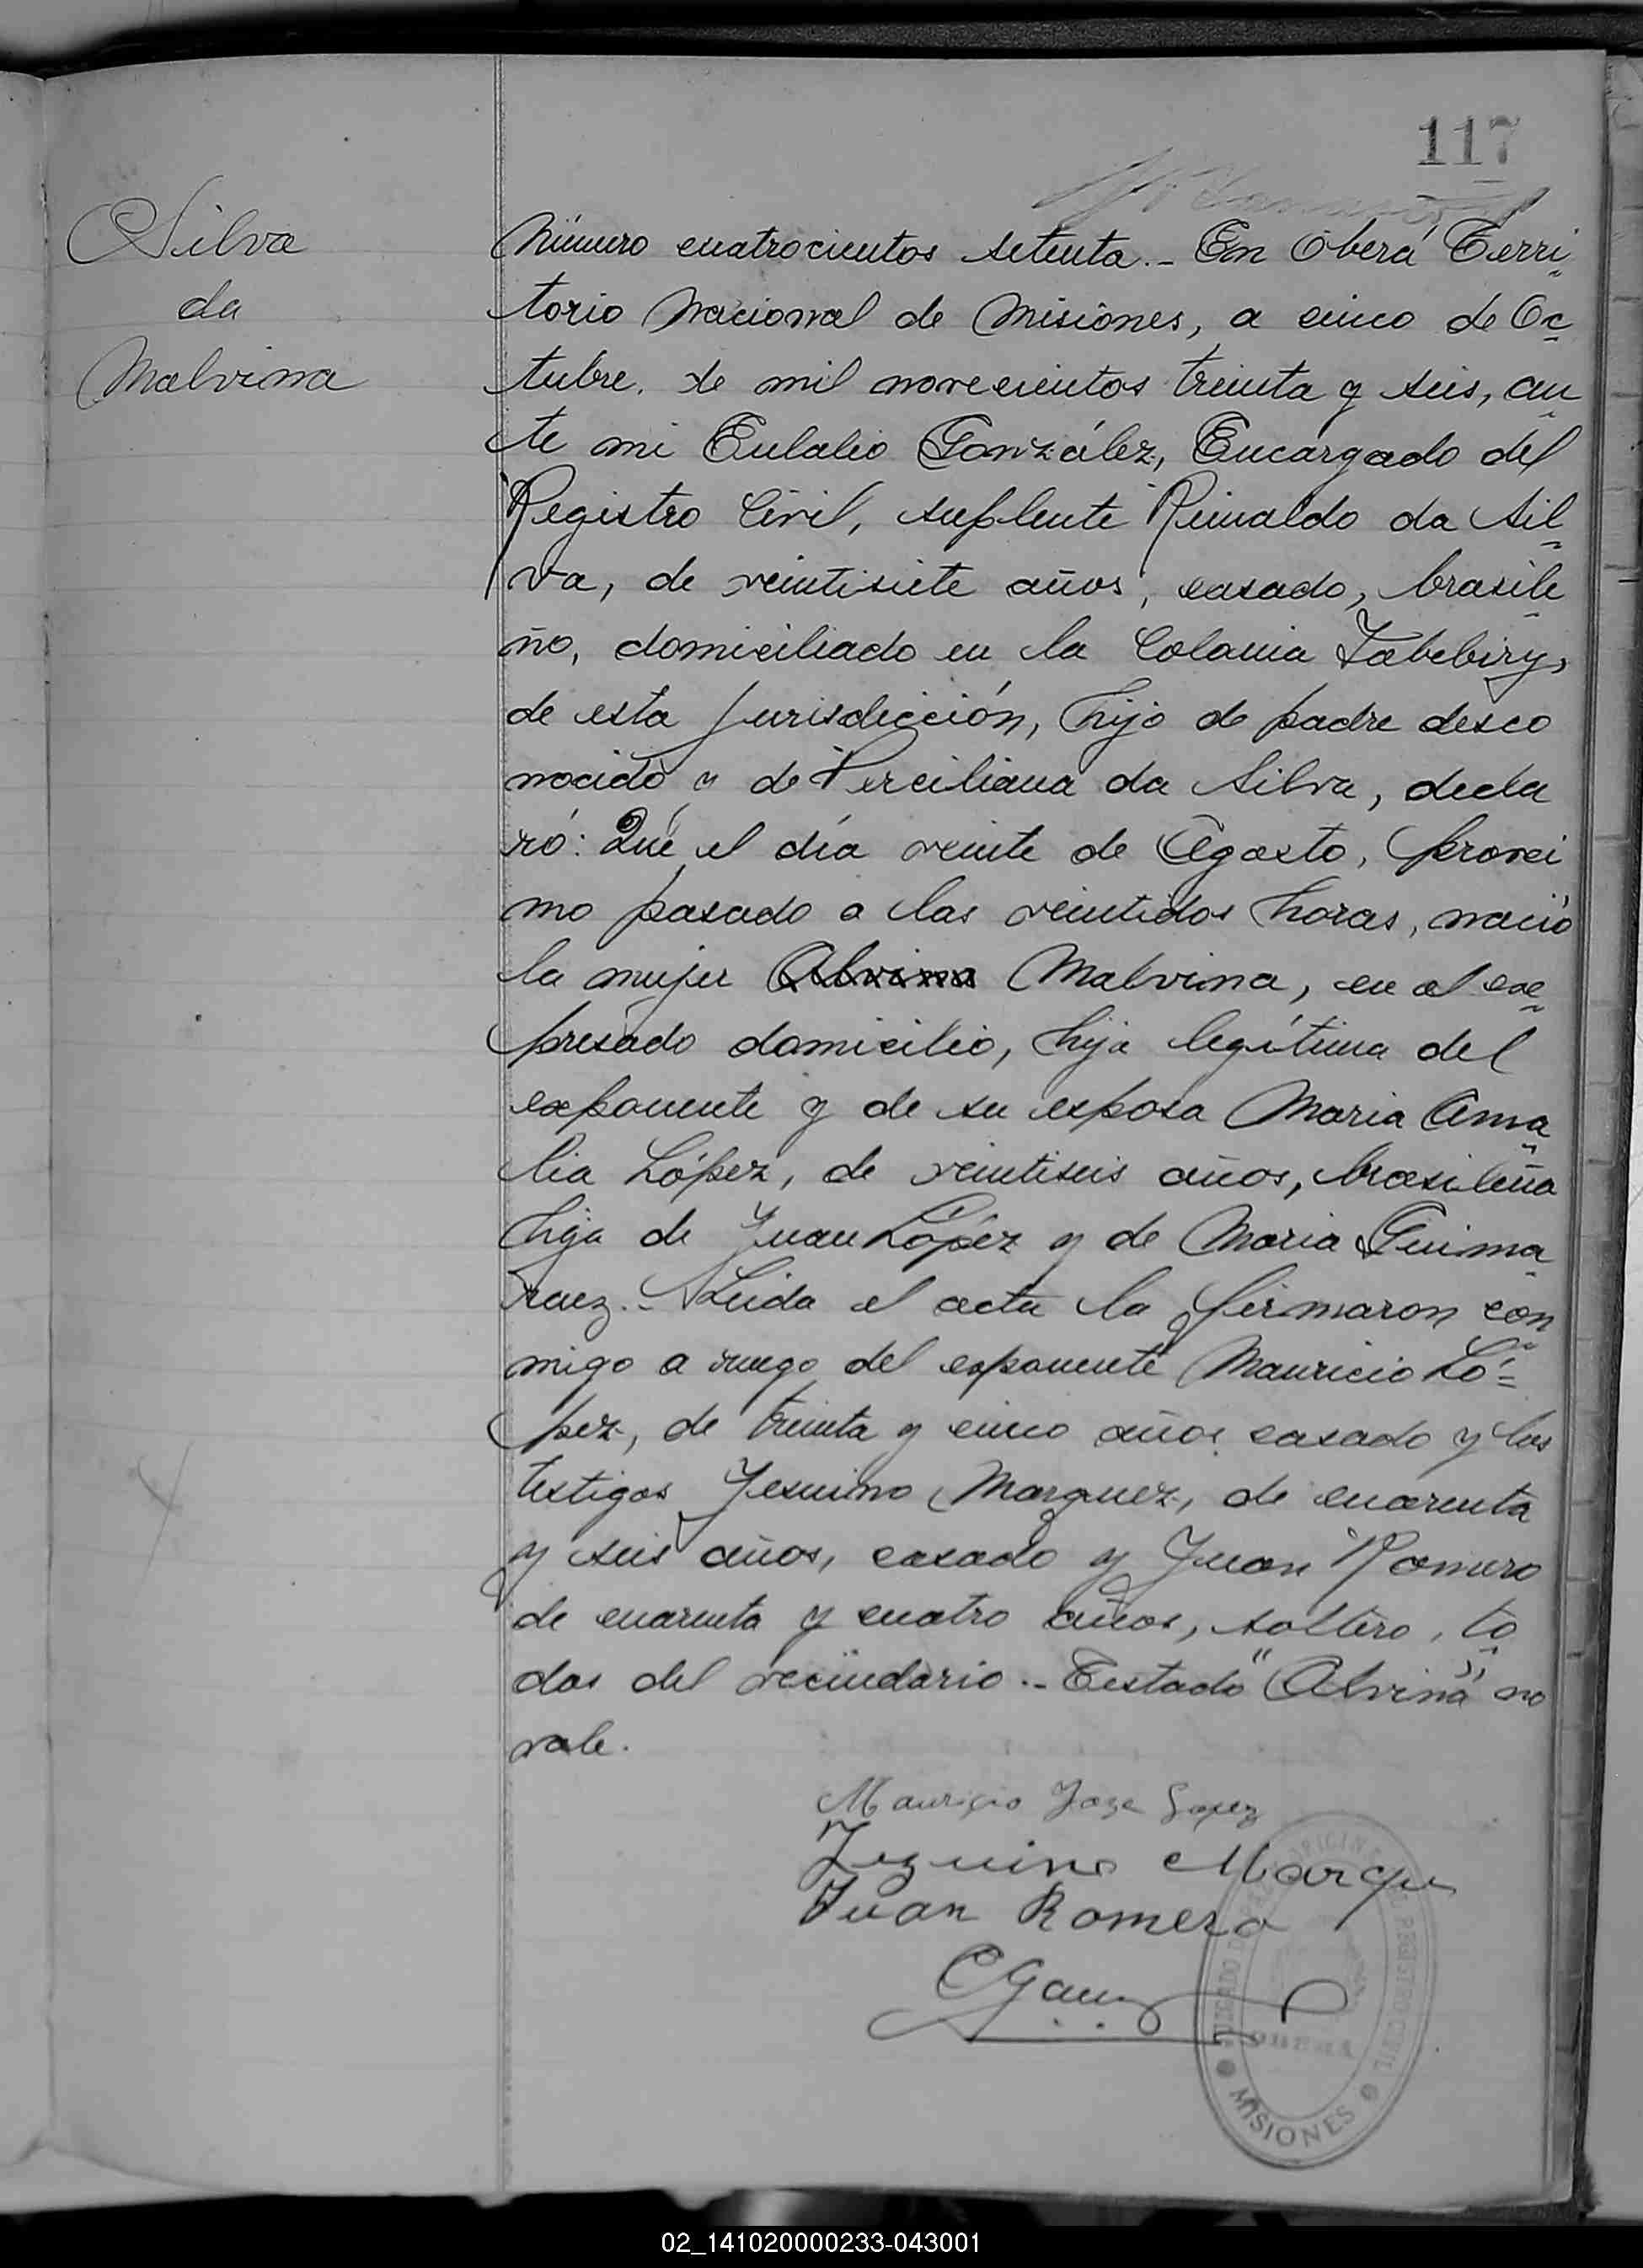 117
Silva
da
Malvina
Número cuatrocientos setenta.- En Oberá Terri
torio Nacional de Misiones, a cinco de Oc
tubre. de mil novecientos treinta y seis, an
te mi Eulalio González, Encargado del
Registro Civil, suplente Reinaldo da Sil
va, de veintisiete años, casado, brasile
ño, domiciliado en la Colonia Yabebiry,
de esta jurisdicción, hijo de padre desco
nocido y de Perciliana da Silva, decla
ró: Que el día veinte de Agosto, proxi
mo pasado a las veintidos horas, nació
la mujer Alvina Malvina, en el ex
presado domicilio, hija legítima del
exponente y de su esposa Maria Ama
lia López, de veintiseis años, brasileña
hija de Juan López y de Maria Guima
raez.- Leida el acta la firmaron con
migo a ruego del exponente Mauricio Ló=
pez, de treinta y cinco años casado y los
testigos Jesuino Marquez, de cuarenta
y seis años, casado y Juan Romero
de cuarenta y cuatro años, soltero, to
dos del vecindario.- Testado "Alvina" no
vale.
Mauricio Joze Lopez
Jezuino Marque
Juan Romero
REGISTRO CIVIL
OBERÁ
MISIONES
02_141020000233-043001